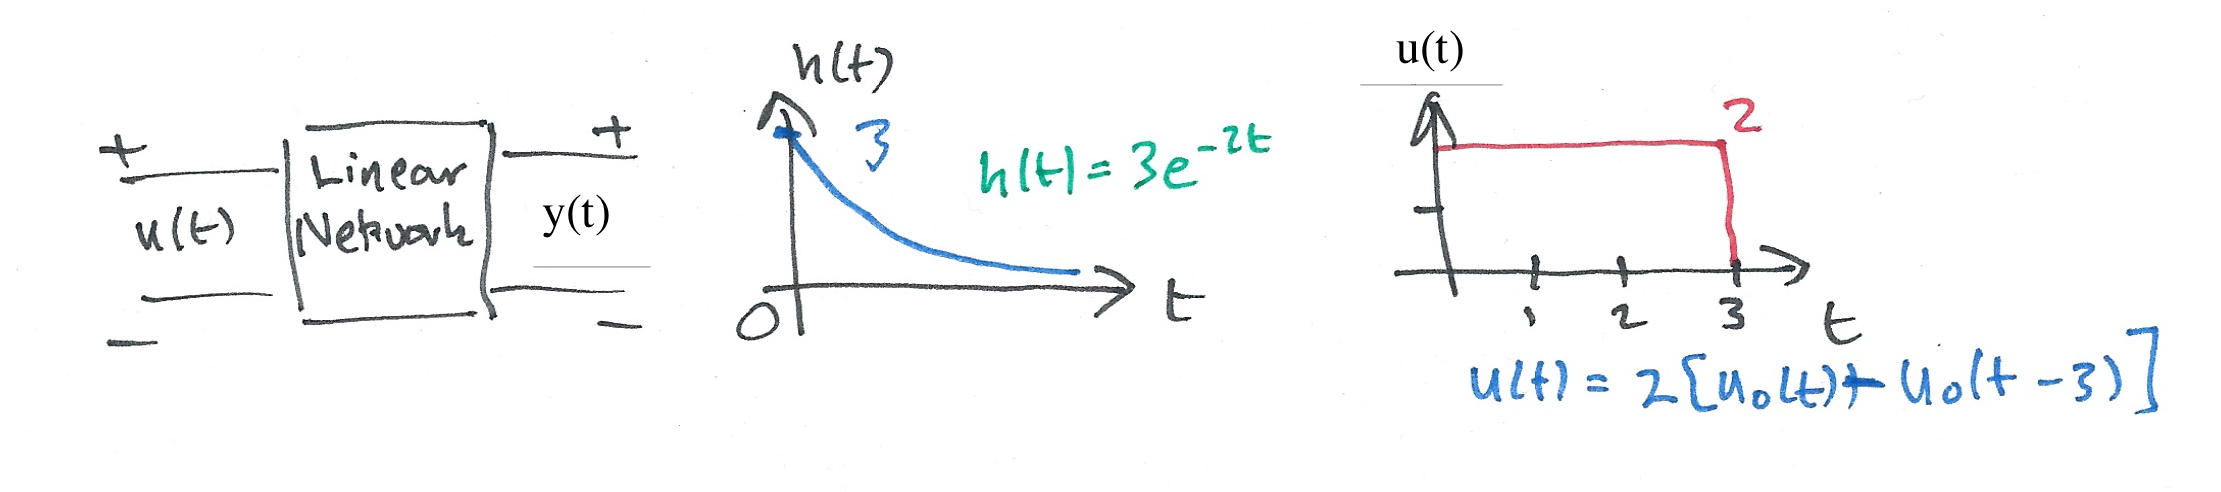 +
u(t)
−
Linear
Network
+
y(t)
−
h(t)
3
h(t) = 3e^-2t
0
t
u(t)
2
1 2 3
t
u(t) = 2[u₀(t) - u₀(t - 3)]